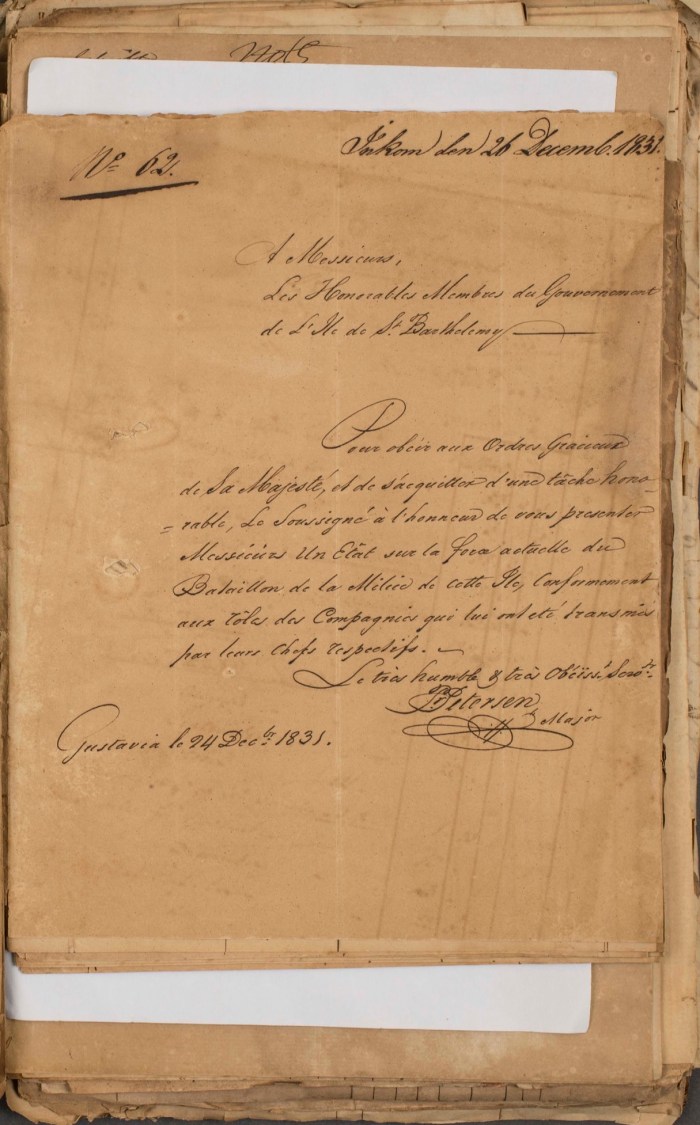 Nots
No 62.
Inkom den 26 Decemb. 1831.
A Messieurs,
Les Honorables Membres du Gouvernement
de L'Ile de St. Barthelemy
Pour obéir aux Ordres Gracieux
de Sa Majesté, et de s'acquitter d'une tâche hono-
=rable, Le Soussigné à l'honneur de vous presenter
Messiéurs Un Etât sur la force actuelle du
Bataillon de la Milice de cette Ile, Conformement
aux rôles des Compagnies qui lui ont été transmis
par leurs Chefs respectifs.
Le très humble & très Obéisst. Servtr.
Petersen
Major
Gustavia le 24 Decbr. 1831.